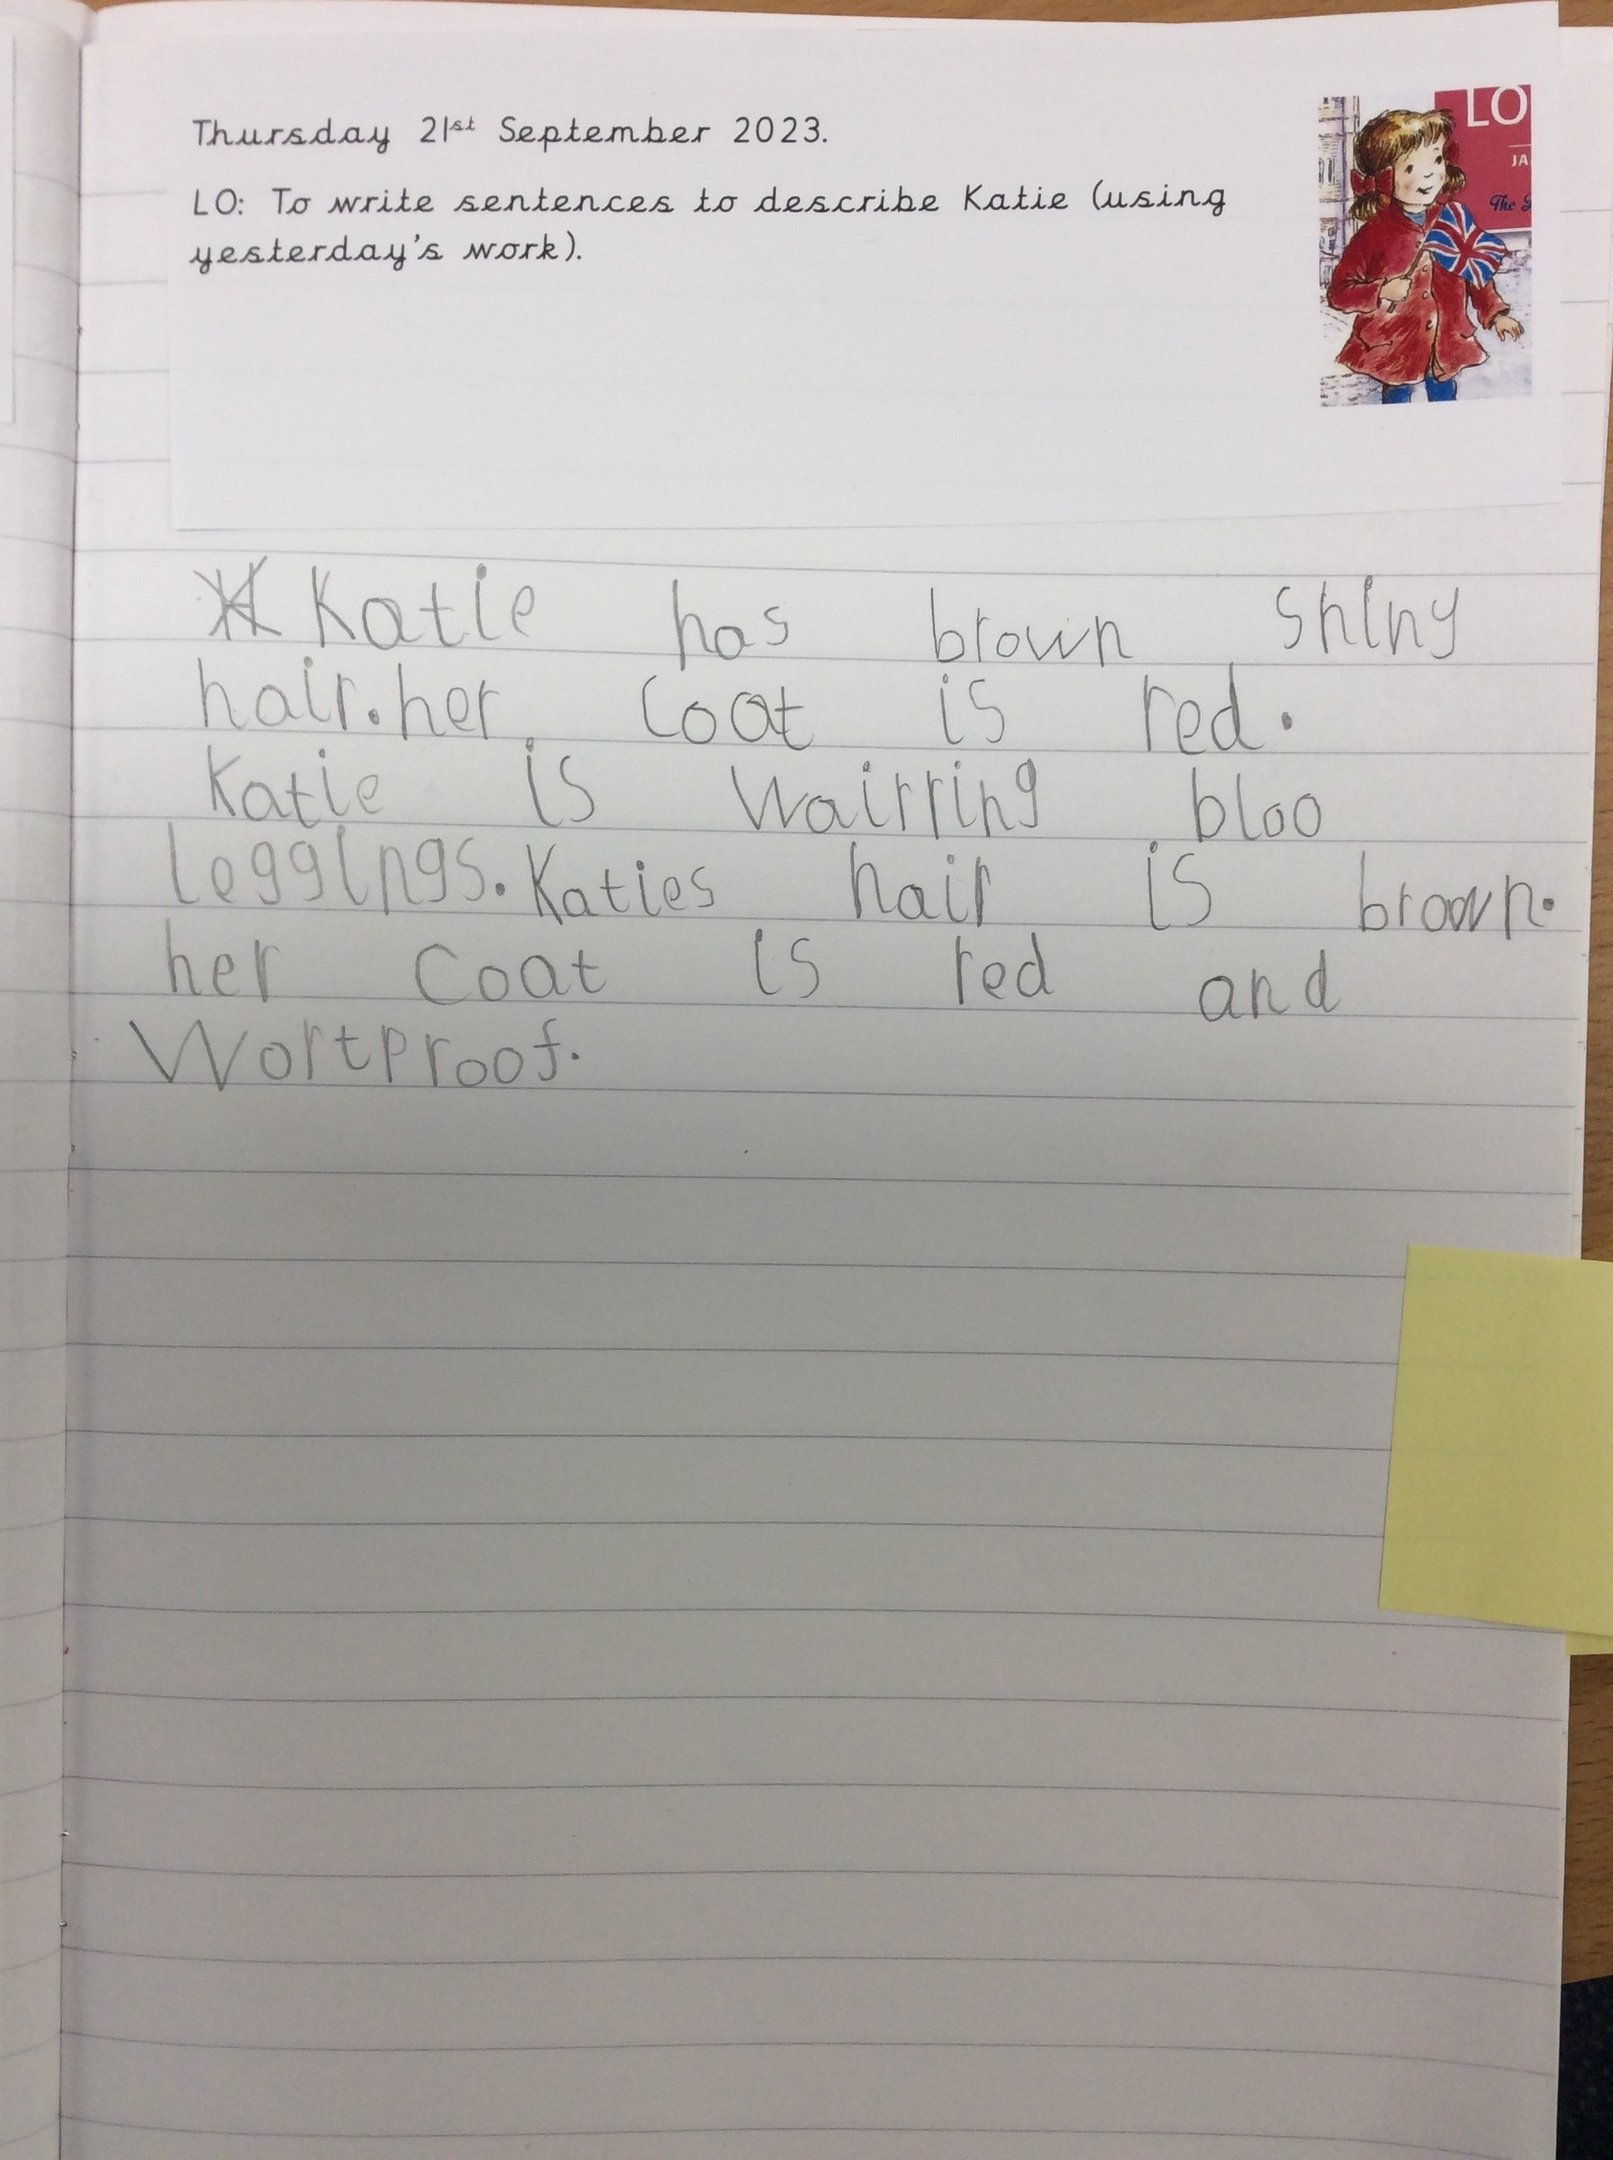 Thursday 21st September 2023.
LO: To write sentences to describe Katie (using
yesterday's work).
LO
JA
The
Katie has brown shiny
hair. her coat is red.
Katie is wairring bloo
leggings. Katies hair is brown.
her coat is red and
wortproof.